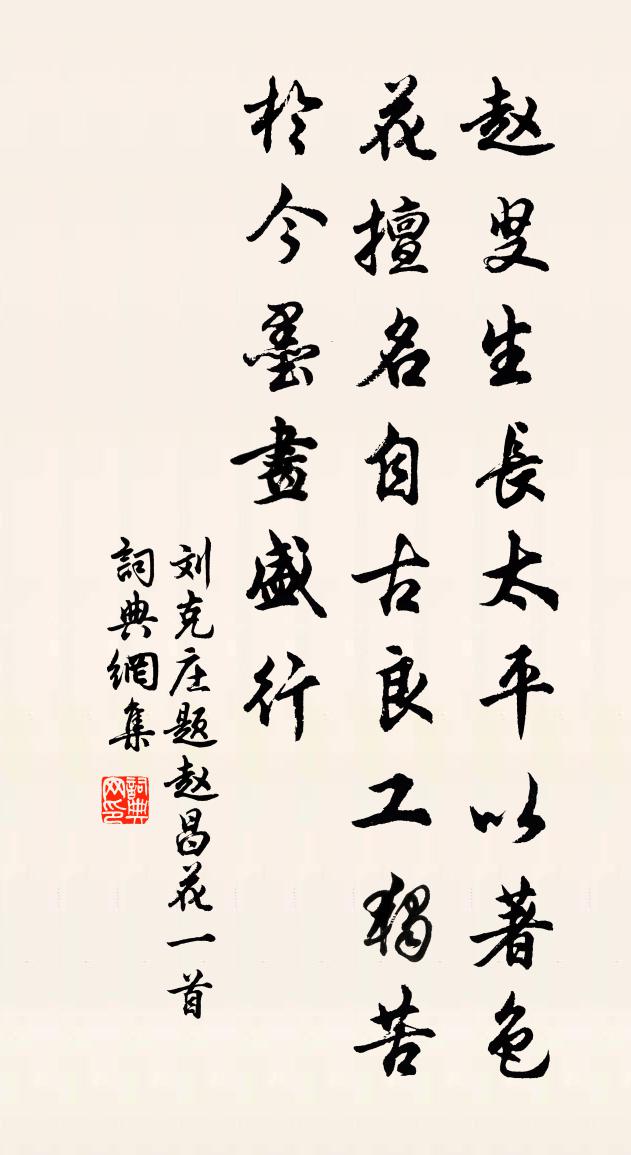 赵叟生長太平以著色
花擅名自古良工獨苦
於今墨畫盛行
刘克庄题赵昌花一首
詞典網集
詞典網印